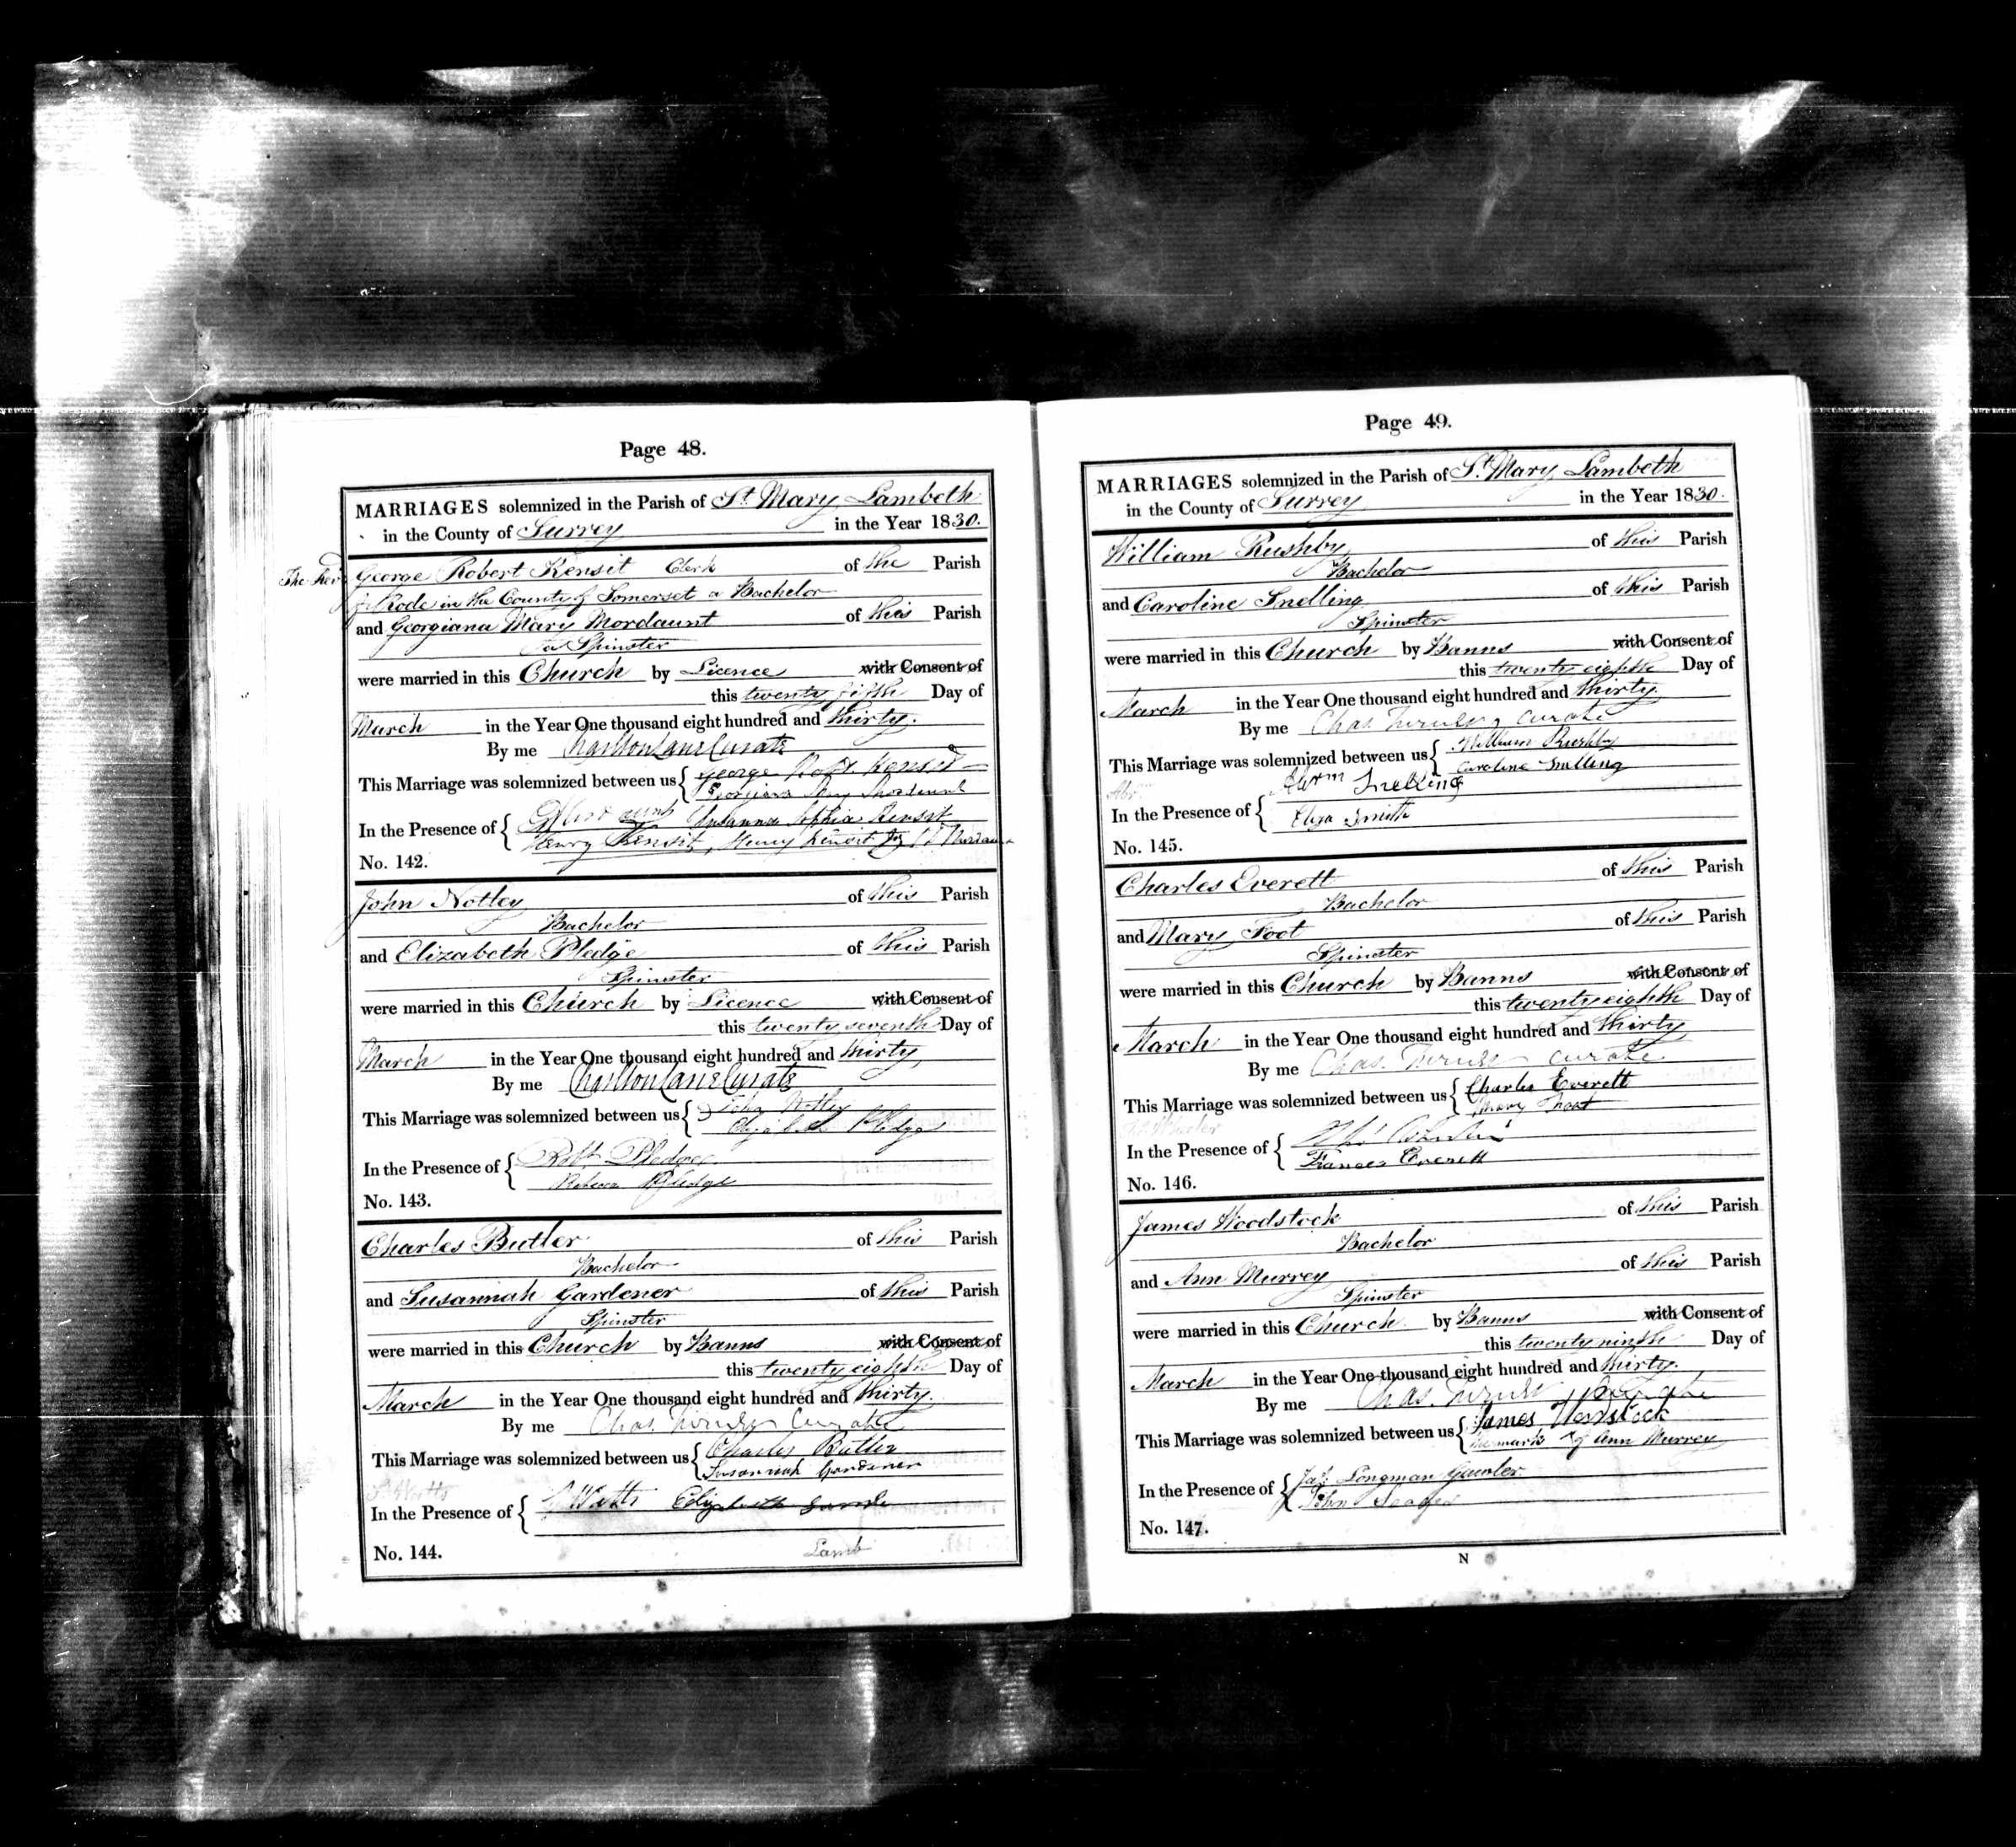 Page 48.
MARRIAGES solemnized in the Parish of St. Mary Lambeth
in the County of Surrey in the Year 1830.
The Rev George Robert Kensit Clerk of the Parish
of Rode in the County of Somerset a Bachelor
and Georgiana Mary Mordaunt of this Parish
a Spinster
were married in this Church by Licence with Consent of
this twenty fifth Day of
March in the Year One thousand eight hundred and thirty.
By me Charlton Lane Curate
This Marriage was solemnized between us George Robt Kensit
Georgiana Mary Mordaunt
In the Presence of Susanna Sophia Kensit
Henry Kensit, Henry Kensit
No. 142.
John Notley of this Parish
Bachelor
and Elizabeth Pledge of this Parish
Spinster
were married in this Church by Licence with Consent of
this twenty seventh Day of
March in the Year One thousand eight hundred and thirty
By me Charlton Lane Curate
This Marriage was solemnized between us John Notley
Elizabeth Pledge
In the Presence of Robt Pledge
Rebecca Pledge
No. 143.
Charles Butler of this Parish
Bachelor
and Susannah Gardener of this Parish
Spinster
were married in this Church by Banns with Consent of
this twenty eighth Day of
March in the Year One thousand eight hundred and thirty.
By me Chas. Turner Curate
This Marriage was solemnized between us Charles Butler
Susannah Gardener
In the Presence of Watts Elizabeth
No. 144.
Lamb
Page 49.
MARRIAGES solemnized in the Parish of St. Mary Lambeth
in the County of Surrey in the Year 1830.
William Rushby of this Parish
Bachelor
and Caroline Snelling of this Parish
Spinster
were married in this Church by Banns with Consent of
this twenty eighth Day of
March in the Year One thousand eight hundred and thirty.
By me Chas. Turner Curate
This Marriage was solemnized between us William Rushby
Caroline Snelling
Abrm Snelling
In the Presence of
Eliza Smith
No. 145.
Charles Everett of this Parish
Bachelor
and Mary Foot of this Parish
Spinster
were married in this Church by Banns with Consent of
this twenty eighth Day of
March in the Year One thousand eight hundred and thirty
By me Chas. Turner Curate
This Marriage was solemnized between us Charles Everett
Mary
In the Presence of
Frances Everett
No. 146.
James Woodstock of this Parish
Bachelor
and Ann Murrey of this Parish
Spinster
were married in this Church by Banns with Consent of
this twenty ninth Day of
March in the Year One thousand eight hundred and thirty.
By me Chas. Turner Curate
This Marriage was solemnized between us James Woodstock
the mark X of Ann Murrey
In the Presence of Jas. Longman Gawler
John Seager
No. 147.
N